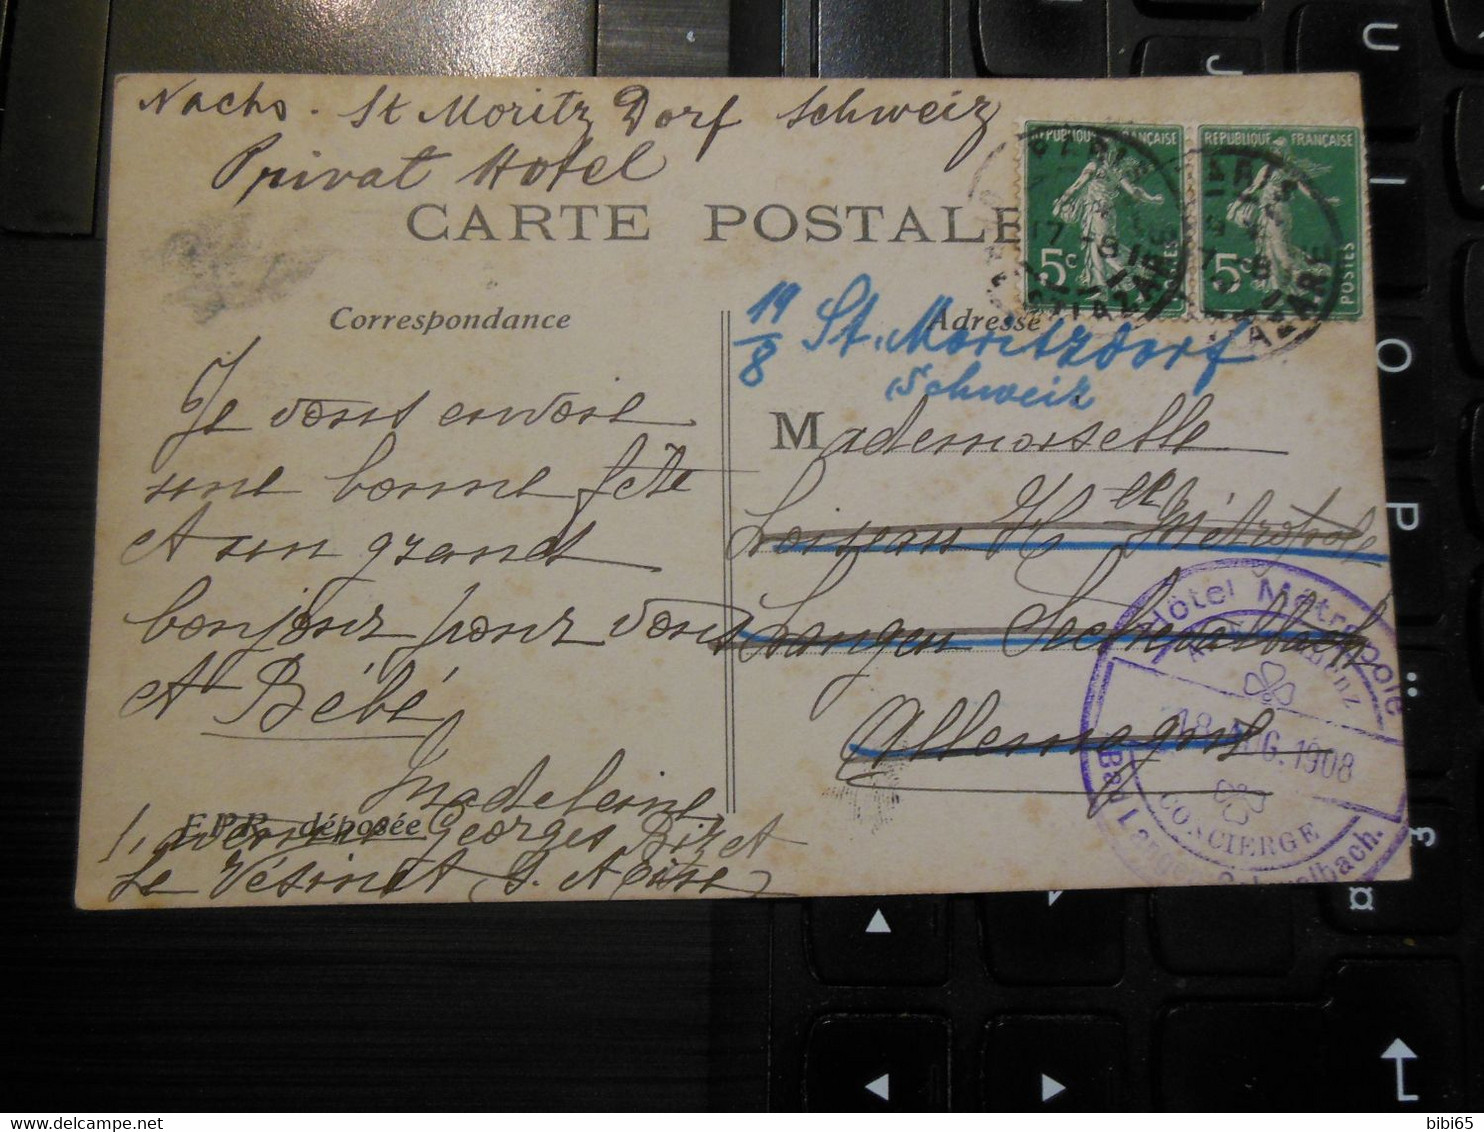 Nachs. St Moritz Dorf Schweiz
Privat Hotel
CARTE POSTALE
REPUBLIQUE FRANÇAISE
5c
POSTES
REPUBLIQUE FRANÇAISE
5c
POSTES
PARIS
17 -8
ST LAZARE
Correspondance
Adresse
19/8 St. Moritzdorf
Schweiz
Je vous envoie
une bonne fête
et un grand
bonjour pour vous
et Bébé
Madeleine
E.P.R. déposée
1, avenue Georges Bizet
Le Vésinet S. et Oise
Mademoiselle
Loiseau Hel Métropole
Langen Schwalbach
Allemagne
Hôtel Métropole
18 AUG. 1908
CONCIERGE
Bad Langenschwalbach.
U
J
I
O
P
L
bibi65